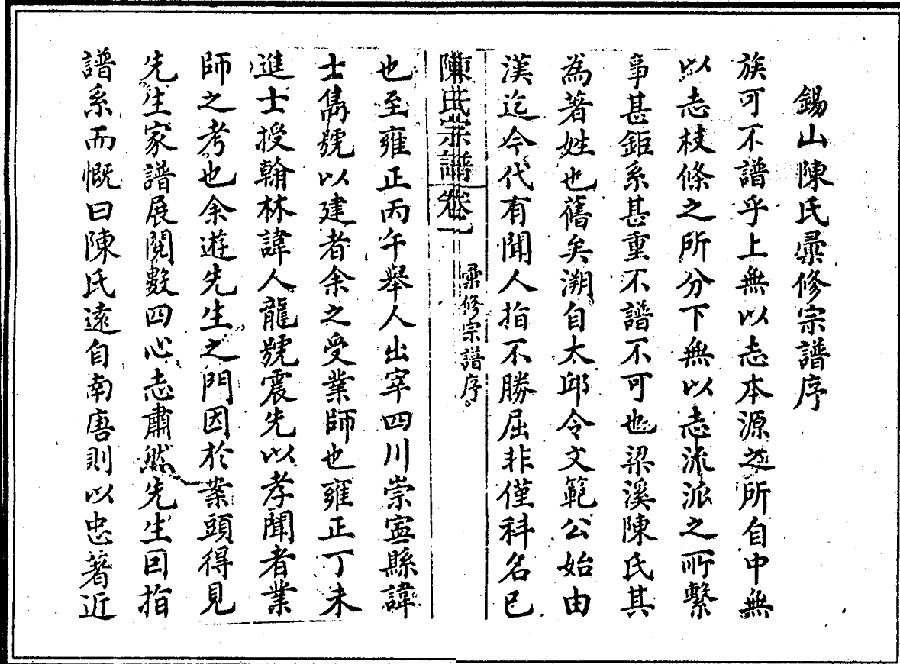 錫山陳氏彚修宗譜序
族可不譜乎上無以志本源之所自中無
以志枝條之所分下無以志流派之所繫
事甚鉅系甚重不譜不可也梁溪陳氏其
為著姓也舊矣溯自太邱令文範公始由
漢迄今代有聞人指不勝屈非僅科名已
陳氏宗譜 卷一 彚修宗譜序
也至雍正丙午舉人出宰四川崇寧縣諱
士雋號以建者余之受業師也雍正丁未
進士授翰林諱人龍號震先以孝聞者業
師之考也余遊先生之門因於業頭得見
先生家譜展閱數四心志肅然先生因指
譜系而慨曰陳氏遠自南唐則以忠著近